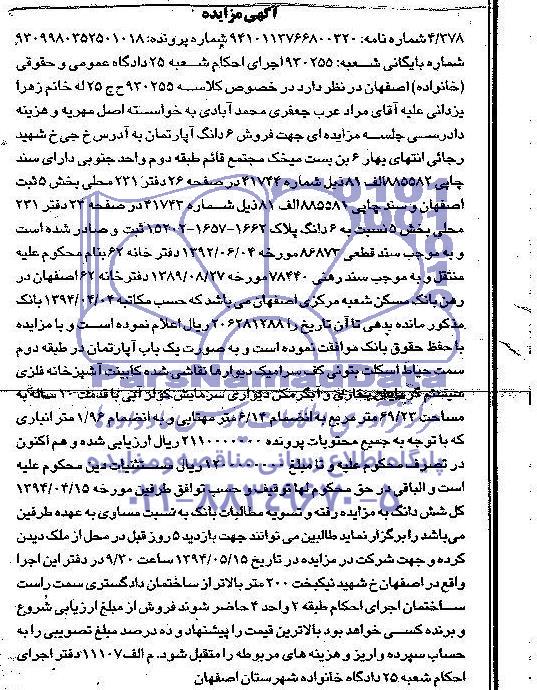 آگهی مزایده
۴/۳۷۸ شماره نامه: ۹۴۱۰۱۱۳۷۶۶۸۰۰۳۲۰ شماره پرونده: ۹۳۰۹۹۸۰۳۵۲۵۰۱۰۱۸
شماره بایگانی شعبه: ۹۳۰۲۵۵ اجرای احکام شعبه ۲۵ دادگاه عمومی و حقوقی
(خانواده) اصفهان در نظر دارد در خصوص کلاسه ۹۳۰۲۵۵ ح ج ۲۵ له خانم زهرا
یزدانی علیه آقای مراد عرب جعفری محمد آبادی به خواسته اصل مهریه و هزینه
دادرسی جلسه مزایده ای جهت فروش ۶ دانگ آپارتمان به آدرس خ جی خ شهید
رجائی انتهای بهار ۶ بن بست میخک مجتمع قائم طبقه دوم واحد جنوبی دارای سند
چاپی ۸۸۵۵۸۲ الف ۸۱ ذیل شماره ۴۱۷۴۴ در صفحه ۲۶ دفتر ۲۳۱ محلی بخش ۵ ثبت
اصفهان و سند چاپی ۸۸۵۵۸۱ الف ۸۱ ذیل شماره ۴۱۷۴۳ در صفحه ۲۴ دفتر ۲۳۱
محلی بخش ۵ نسبت به ۶ دانگ پلاک ۱۶۶۲-۱۶۵۷-۱۵۲۰۲ ثبت و صادر شده است
و به موجب سند قطعی ۸۶۸۷۳ مورخه ۱۳۹۲/۰۶/۰۴ دفتر خانه ۶۲ بنام محکوم علیه
منتقل و به موجب سند رهنی ۷۸۴۴۰ مورخه ۱۳۸۹/۰۸/۲۷ دفترخانه ۶۲ اصفهان در
رهن بانک مسکن شعبه مرکزی اصفهان می باشد که حسب مکاتبه ۱۳۹۴/۰۴/۰۴ بانک
مذکور مانده بدهی تا آن تاریخ را ۲۰۶۲۸۱۲۸۸ ریال اعلام نموده است و با مزایده
با حفظ حقوق بانک موافقت نموده است و به صورت یک باب آپارتمان در طبقه دوم
سمت حیاط اسکلت بتونی کف سرامیک دیوارها نقاشی شده کابینت آشپزخانه فلزی
سیستم گرمایش بخاری و آبگرمکن دیواری سرمایش کولر آبی با قدمت ۱۰ ساله به
مساحت ۶۹/۲۳ متر مربع به انضمام ۶/۱۴ متر مهتابی و به انضمام ۱/۹۶ متر انباری
که با توجه به جمیع محتویات پرونده ۲۱۱۰۰۰۰۰۰۰ ریال ارزیابی شده و هم اکنون
در تصرف محکوم علیه و تا مبلغ ریال مستثنیات دین محکوم علیه
است و الباقی در حق محکوم لها توقیف و حسب توافق طرفین مورخه ۱۳۹۴/۰۴/۱۵
کل شش دانگ به مزایده رفته و تسویه مطالبات بانک به نسبت مساوی به عهده طرفین
می باشد را برگزار نماید طالبین می توانند جهت بازدید ۵ روز قبل در محل از ملک دیدن
کرده و جهت شرکت در مزایده در تاریخ ۱۳۹۴/۰۵/۱۵ ساعت ۹/۳۰ در دفتر این اجرا
واقع در اصفهان خ شهید نیکبخت ۲۰۰ متر بالاتر از ساختمان دادگستری سمت راست
ساختمان اجرای احکام طبقه ۲ واحد ۴ حاضر شوند فروش از مبلغ ارزیابی شروع
و برنده کسی خواهد بود بالاترین قیمت را پیشنهاد و ده درصد مبلغ تصویبی را به
حساب سپرده واریز و هزینه های مربوطه را متقبل شود. م الف ۱۱۱۰۷ دفتر اجرای
احکام شعبه ۲۵ دادگاه خانواده شهرستان اصفهان
ParsNamadData
پایگاه اطلاع رسانی مناقصه و مزایده
۰۲۱-۸۸۳۴۹۶۷۰-۵